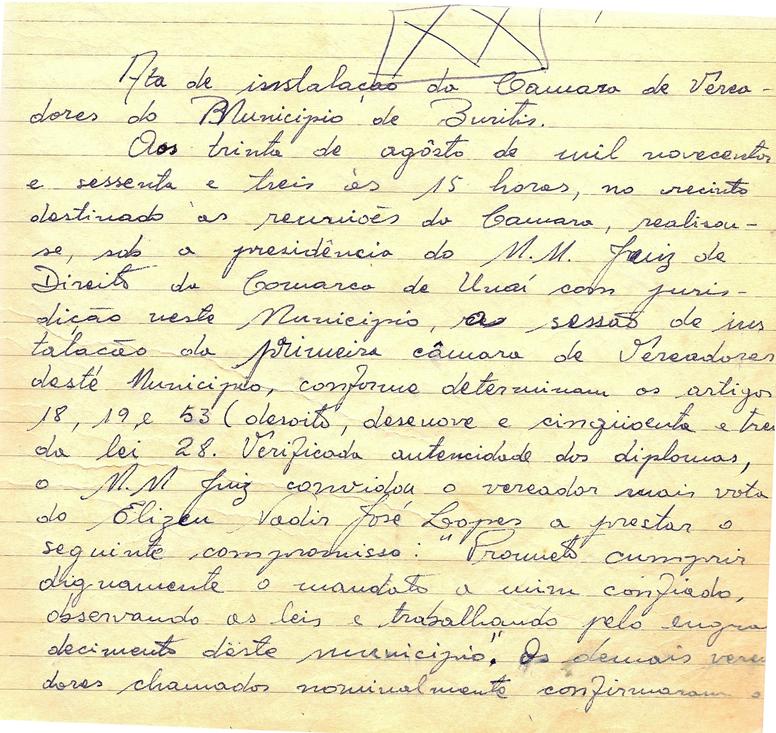 Ata de instalação da Camara de Verea-
dores do Municipio de Buritis.
Aos trinta de agôsto de mil novecentos
e sessenta e treis às 15 hores, no recinto
destinado às reuniões da Camara, realisou-
se, sob a presidência do M.M. Juiz de
Direito da Comarca de Unaí com juris-
dição neste Municipio, a sessão de ins
talação da primeira câmara de Vereadores
deste Municipio, conforme determinam os artigos
18, 19, e 53 (desoito, desenove e cinqüoenta e tres
da lei 28. Verificada autencidade dos diplomas,
o M.M Juiz convidou o vereador mais vota
do Elizeu Vadir José Lopes a prestar o
seguinte compromisso: "Prometo cumprir
dignamente o mandato a mim confiado,
observando as leis e trabalhando pelo engra
decimento dêste municipio". Os demais verea
dores chamados nominalmente confirmaram o